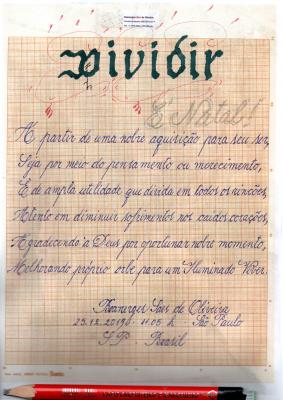 vividir
É Natal!
A partir de uma nobre aquisição para seu ser,
Seja por meio do pensamento ou merecimento,
É de ampla utilidade que divida em todos os rincões,
Atento em diminuir sofrimentos nos caídos corações,
Agradecendo à Deus por oportunar nobre momento,
Melhorando próprio orbe para um Iluminado Viver.
Boanerges Saes de Oliveira
25.12.2019 11:05 h. São Paulo
SP Brasil